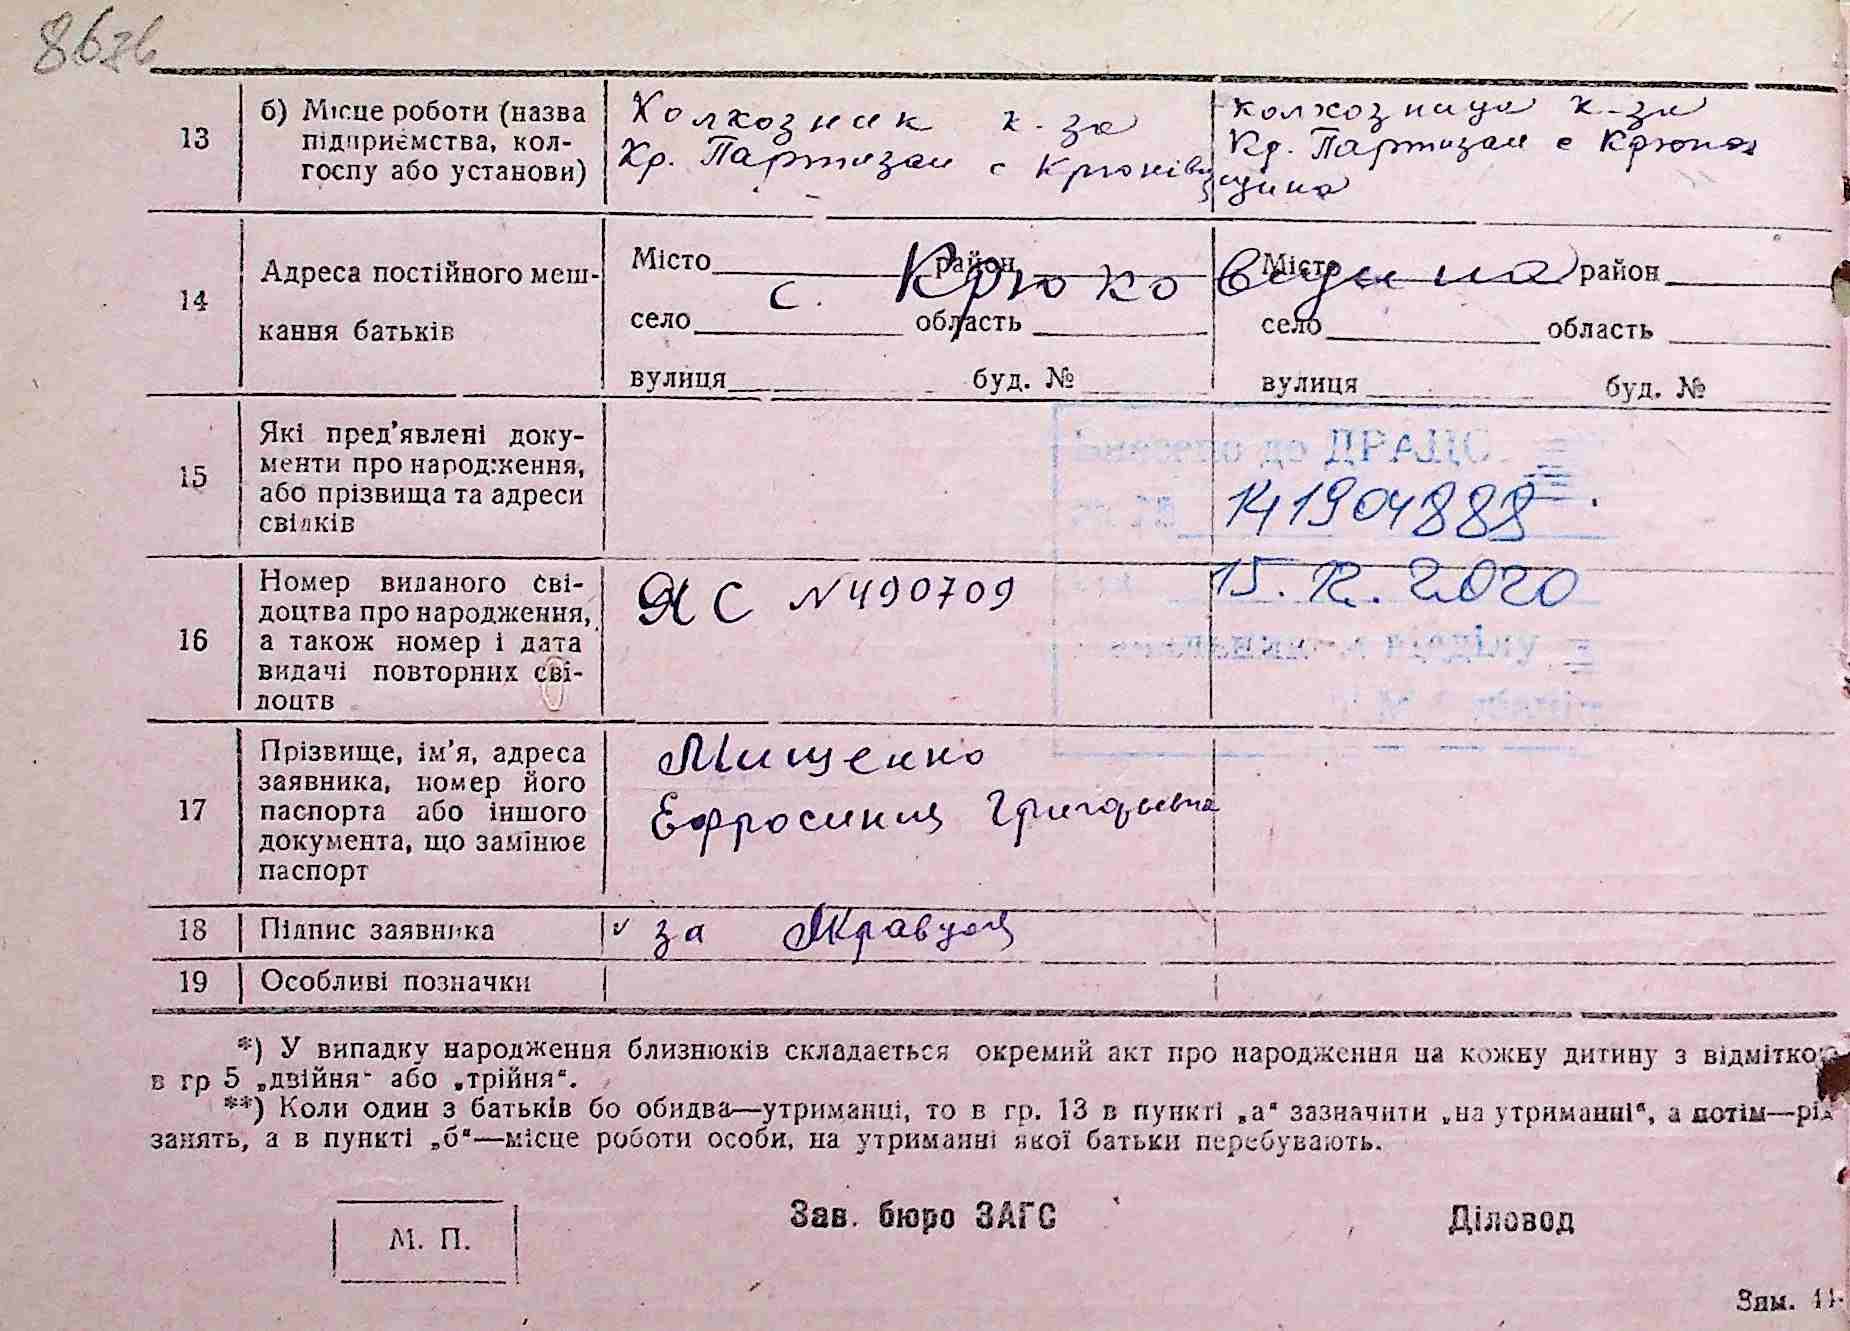 86зв
13 б) Місце роботи (назва підприємства, колгоспу або установи)
Колхозник к-за
Кр. Партизан с Крюківщина
колхозница к-за
Кр. Партизан с Крюков
щина
14 Адреса постійного мешкання батьків
Місто район Місто район
с. Крюковщина
село область село область
вулиця буд. № вулиця буд. №
15 Які пред'явлені документи про народження, або прізвища та адреси свідків
Внесено до ДРАЦС
за № 141904888
15.12.2020
відділу
16 Номер виданого свідоцтва про народження, а також номер і дата видачі повторних свідоцтв
ЯС N490709
17 Прізвище, ім'я, адреса заявника, номер його паспорта або іншого документа, що замінює паспорт
Мищенко
Ефросиния Григорьевна
18 Підпис заявника
за Кравцов
19 Особливі позначки
*) У випадку народження близнюків складається окремий акт про народження на кожну дитину з відміткою
в гр 5 „двійня“ або „трійня“.
**) Коли один з батьків бо обидва—утриманці, то в гр. 13 в пункті „а“ зазначити „на утриманні“, а потім—рід
занять, а в пункті „б“—місце роботи особи, на утриманні якої батьки перебувають.
М. П.
Зав. бюро ЗАГС
Діловод
Зам. 11